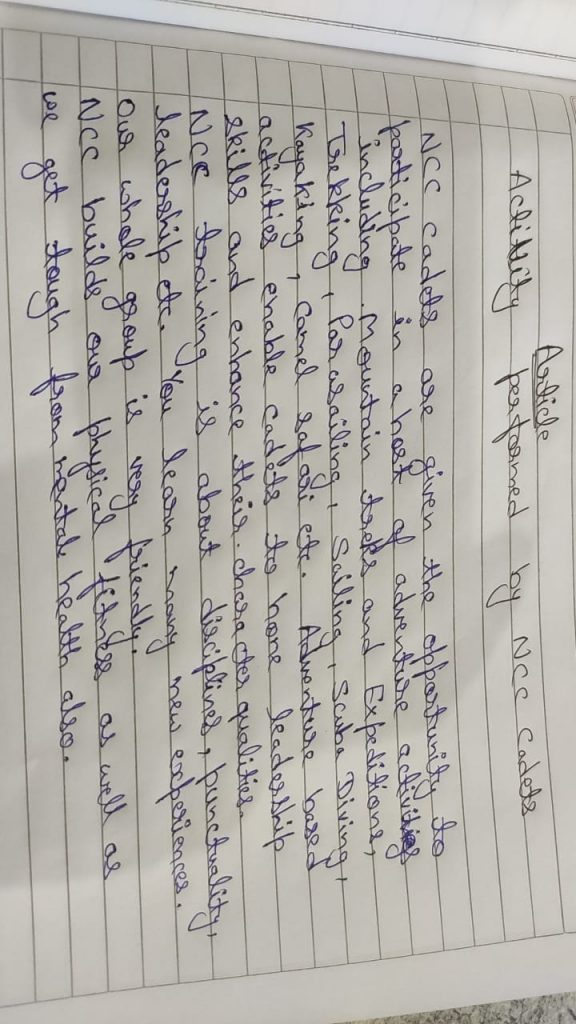 Article
Activity performed by NCC Cadets
NCC cadets are given the opportunity to
participate in a host of adventure activities
including. Mountain treks and Expeditions,
Trekking, Parasailing, Sailing, Scuba Diving,
Kayaking, Camel Safari etc. Adventure based
activities enable cadets to hone leadership
skills and enhance their. character qualities.
NCC training is about disciplines, punctuality,
leadership etc. You learn many new experiences.
Our whole group is very friendly.
NCC builds our physical fitness as well as
we get tough from mental health also.